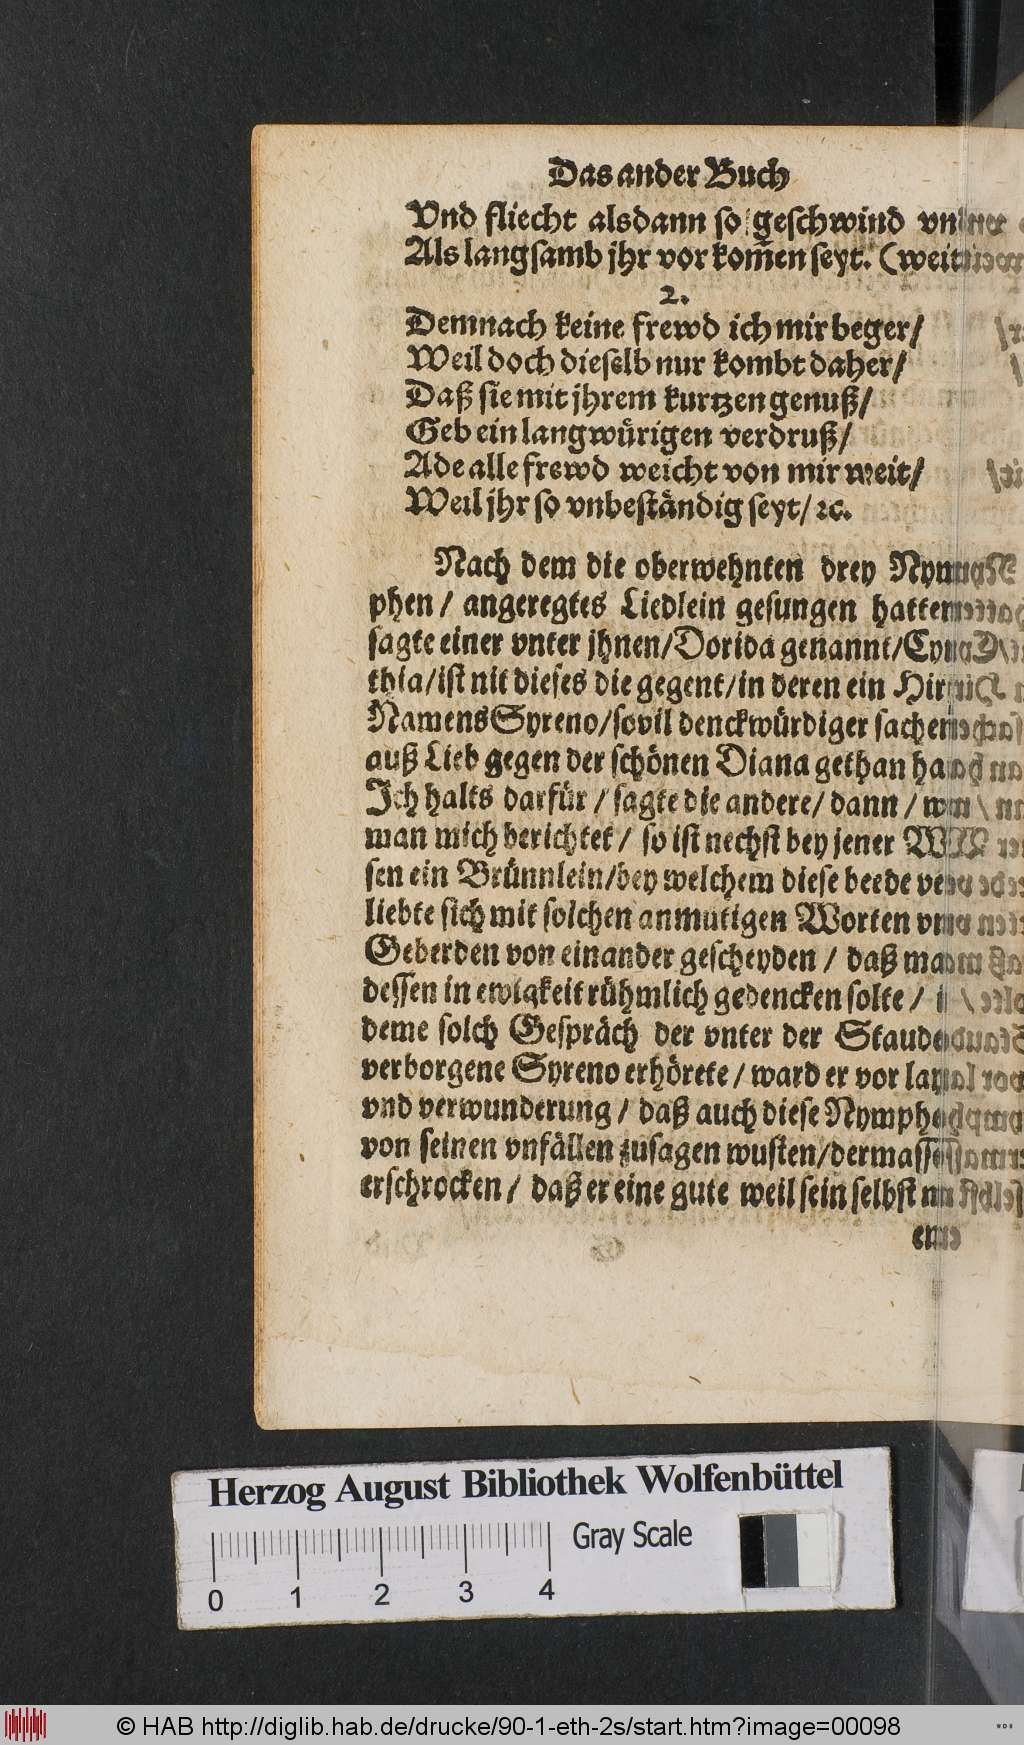 Das ander Buch
Vnd fliecht alsdann so geschwind vn
Als langsamb jhr vor kom̃en seyt. (weit
2.
Demnach keine frewd ich mir beger/
Weil doch dieselb nur kombt daher/
Daß sie mit jhrem kurtzen genuß/
Geb ein langwürigen verdruß/
Ade alle frewd weicht von mir weit/
Weil jhr so vnbeständig seyt/ ꝛc.
Nach dem die oberwehnten drey Nym
phen / angeregtes Liedlein gesungen hatten
sagte einer vnter jhnen/Dorida genannt/Cyn
thia/ist nit dieses die gegent/in deren ein Hir
Namens Syreno/sovil denckwürdiger sachen
auß Lieb gegen der schönen Diana gethan ha
Ich halts darfür / sagte die andere/ dann /
man mich berichtet / so ist nechst bey jener Wi
sen ein Brünnlein/bey welchem diese beede ver
liebte sich mit solchen anmutigen Worten vn
Geberden von einander gescheyden / daß man
dessen in ewigkeit rühmlich gedencken solte / i
deme solch Gespräch der vnter der Staude
verborgene Syreno erhörete / ward er vor
vnd verwunderung / daß auch diese Nymphe
von seinen vnfällen zusagen wusten/dermassen
erschrocken / daß er eine gute weil sein selbst
Herzog August Bibliothek Wolfenbüttel
Gray Scale
0 1 2 3 4
© HAB http://diglib.hab.de/drucke/90-1-eth-2s/start.htm?image=00098